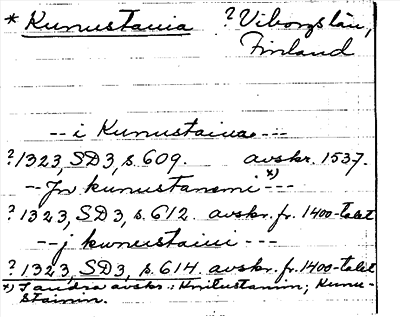 * Kunustauia ? Viborgs län,
Finland
-- i Kunustaiua ---
? 1323, SD 3, s. 609. avskr. 1537.
-- Jn kunustanemi *) ---
? 1323, SD 3, s. 612. avskr. fr. 1400-talet
-- j kunustaiui ---
? 1323, SD 3, s. 614. avskr. fr. 1400-talet
*) I andra avskr.: Knitustamin; Kunu-
stainin.